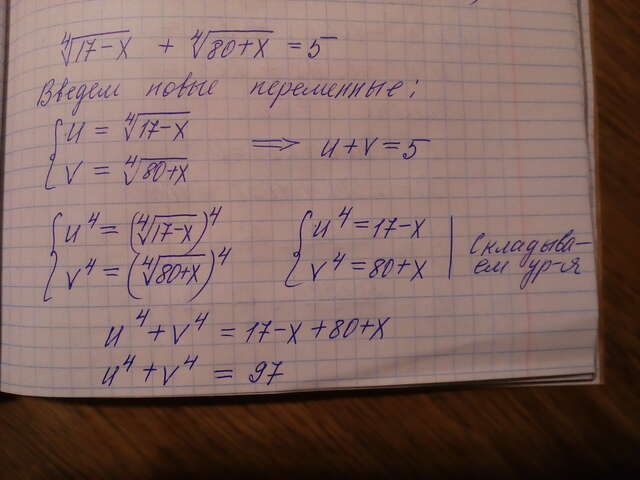 ∜(17-x) + ∜(80+x) = 5
Введем новые переменные:
{ u = ∜(17-x)
{ v = ∜(80+x)
⟹ u+v=5
{ u⁴ = (∜(17-x))⁴
{ v⁴ = (∜(80+x))⁴
{ u⁴ = 17-x
{ v⁴ = 80+x
| Складыва-
ем ур-я
u⁴ + v⁴ = 17-x+80+x
u⁴ + v⁴ = 97